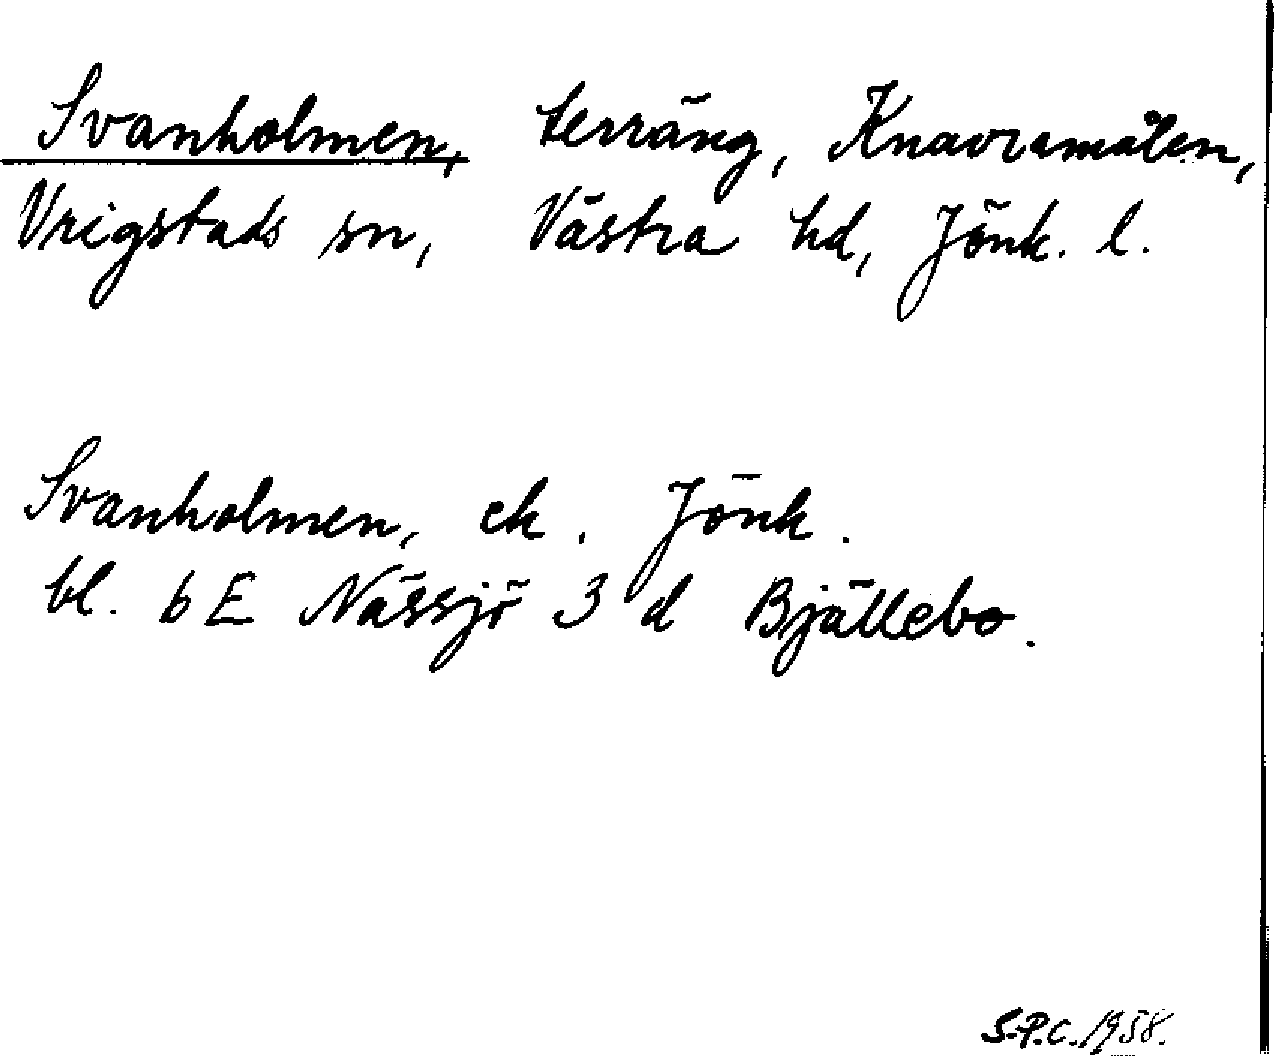 Svanholmen, terräng, Knavramålen,
Vrigstads sn, Västra hd, Jönk. l.
Svanholmen, ek. Jönk.
bl. 6 E Nässjö 3 d Bjällebo.
S.P.C. 1958.